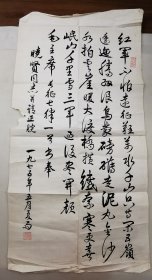 红军不怕远征难万水千山只等闲五岭
逶迤腾细浪乌蒙磅礴走泥丸金沙
水拍云崖暖大渡桥横铁索寒更喜
岷山千里雪三军过后尽开颜
毛主席长征七律一首书奉
晓贤同志并请正腕
一九七五年五月